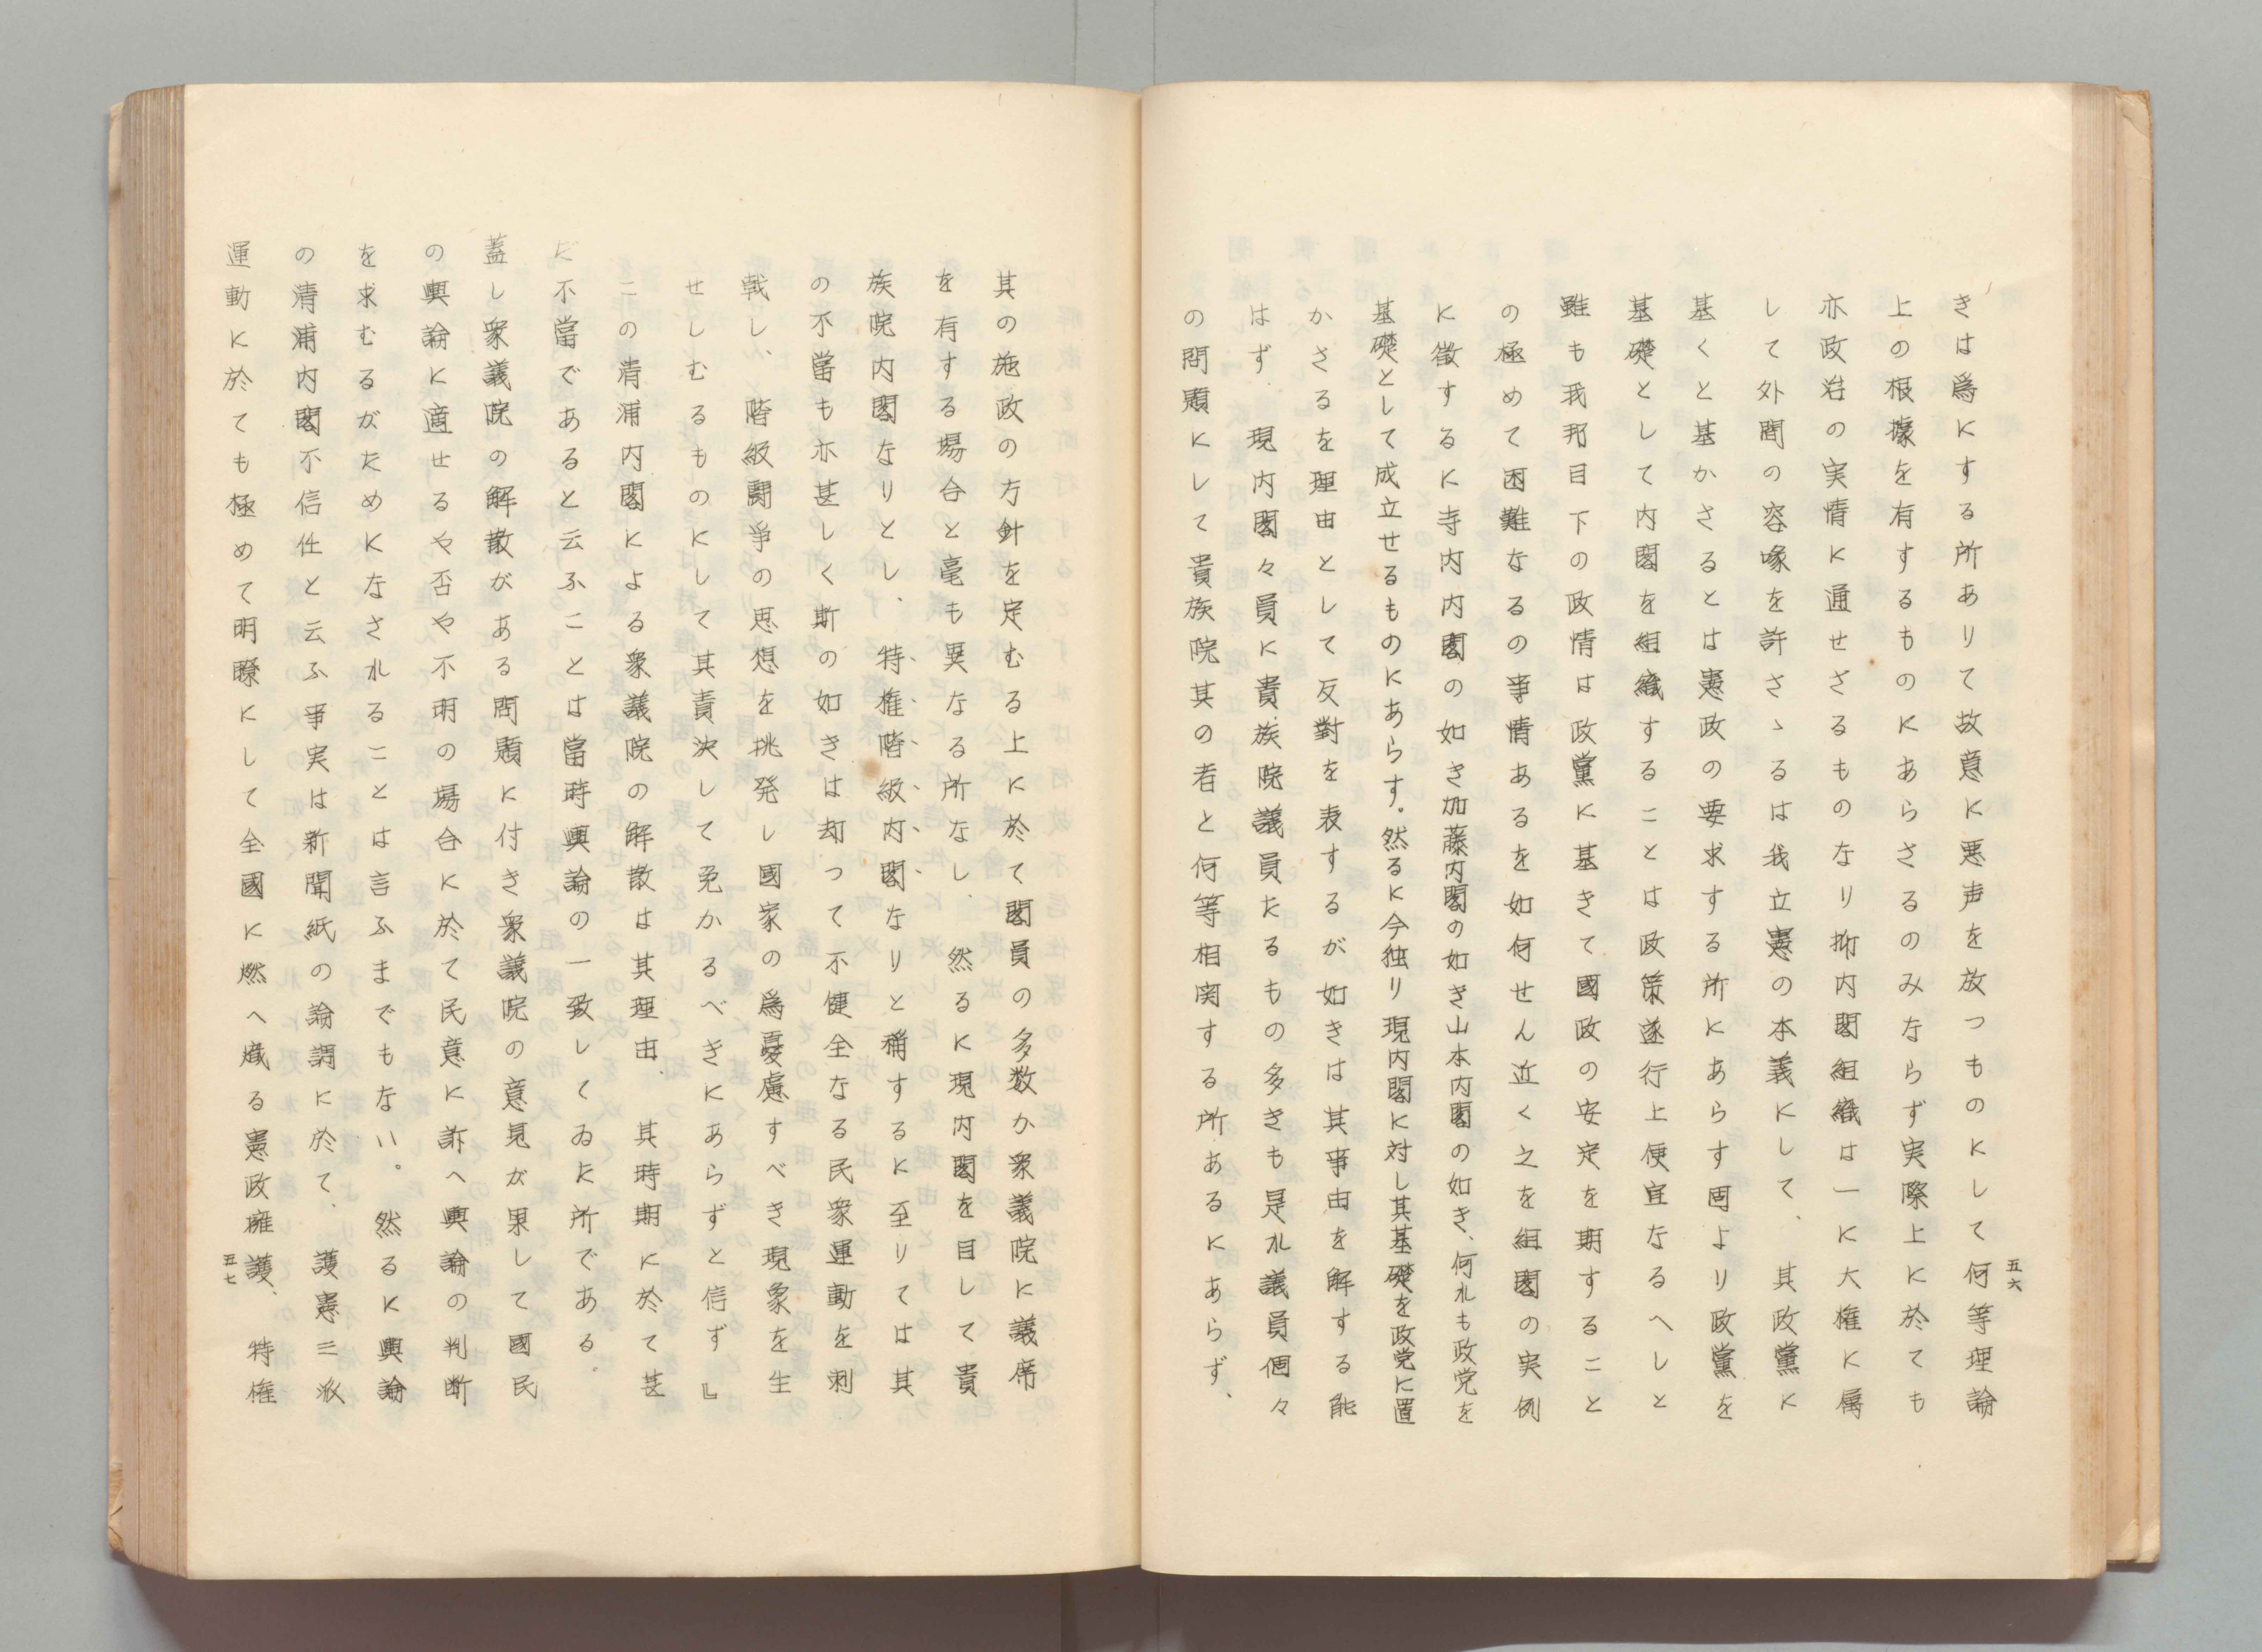 五六
きは爲にする所ありて故意に悪声を放つものにして何等理論
上の根據を有するものにあらさるのみならず実際上に於ても
亦政治の実情に通せざるものなり抑内閣組織は一に大権に属
して外間の容喙を許さゝるは我立憲の本義にして、其政黨に
基くと基かさるとは憲政の要求する所にあらす固より政黨を
基礎として内閣を組織することは政策遂行上便宜なるへしと
雖も我邦目下の政情は政黨に基きて國政の安定を期すること
の極めて困難なるの事情あるを如何せん近く之を組閣の実例
に徴するに寺内内閣の如き加藤内閣の如き山本内閣の如き、何れも政党を
基礎として成立せるものにあらす。然るに今独り現内閣に対し其基礎を政党に置
かさるを理由として反對を表するが如きは其事由を解する能
はず、現内閣々員に貴族院議員たるもの多きも是れ議員個々
の問題にして貴族院其の者と何等相関する所あるにあらず、
其の施政の方針を定むる上に於て閣員の多数か衆議院に議席
を有する場合と毫も異なる所なし、然るに現内閣を目して貴
族院内閣なりとし、特権階級内閣なりと稱するに至りては其
の不當も亦甚しく斯の如きは却つて不健全なる民衆運動を刺
戟し、階級鬪爭の思想を挑発し國家の爲憂慮すべき現象を生
せしむるものにして其責決して免かるべきにあらずと信ず』
この清浦内閣による衆議院の解散は其理由、其時期に於て甚
だ不當であると云ふことは當時輿論の一致してゐた所である。
蓋し衆議院の解散がある問題に付き衆議院の意見が果して國民
の輿論に適せるや否や不明の場合に於て民意に訴へ輿論の判断
を求むるがためになされることは言ふまでもない。然るに輿論
の清浦内閣不信任と云ふ事実は新聞紙の論調に於て、護憲三派
運動に於ても極めて明瞭にして全國に燃へ熾る憲政擁護、特権
五七